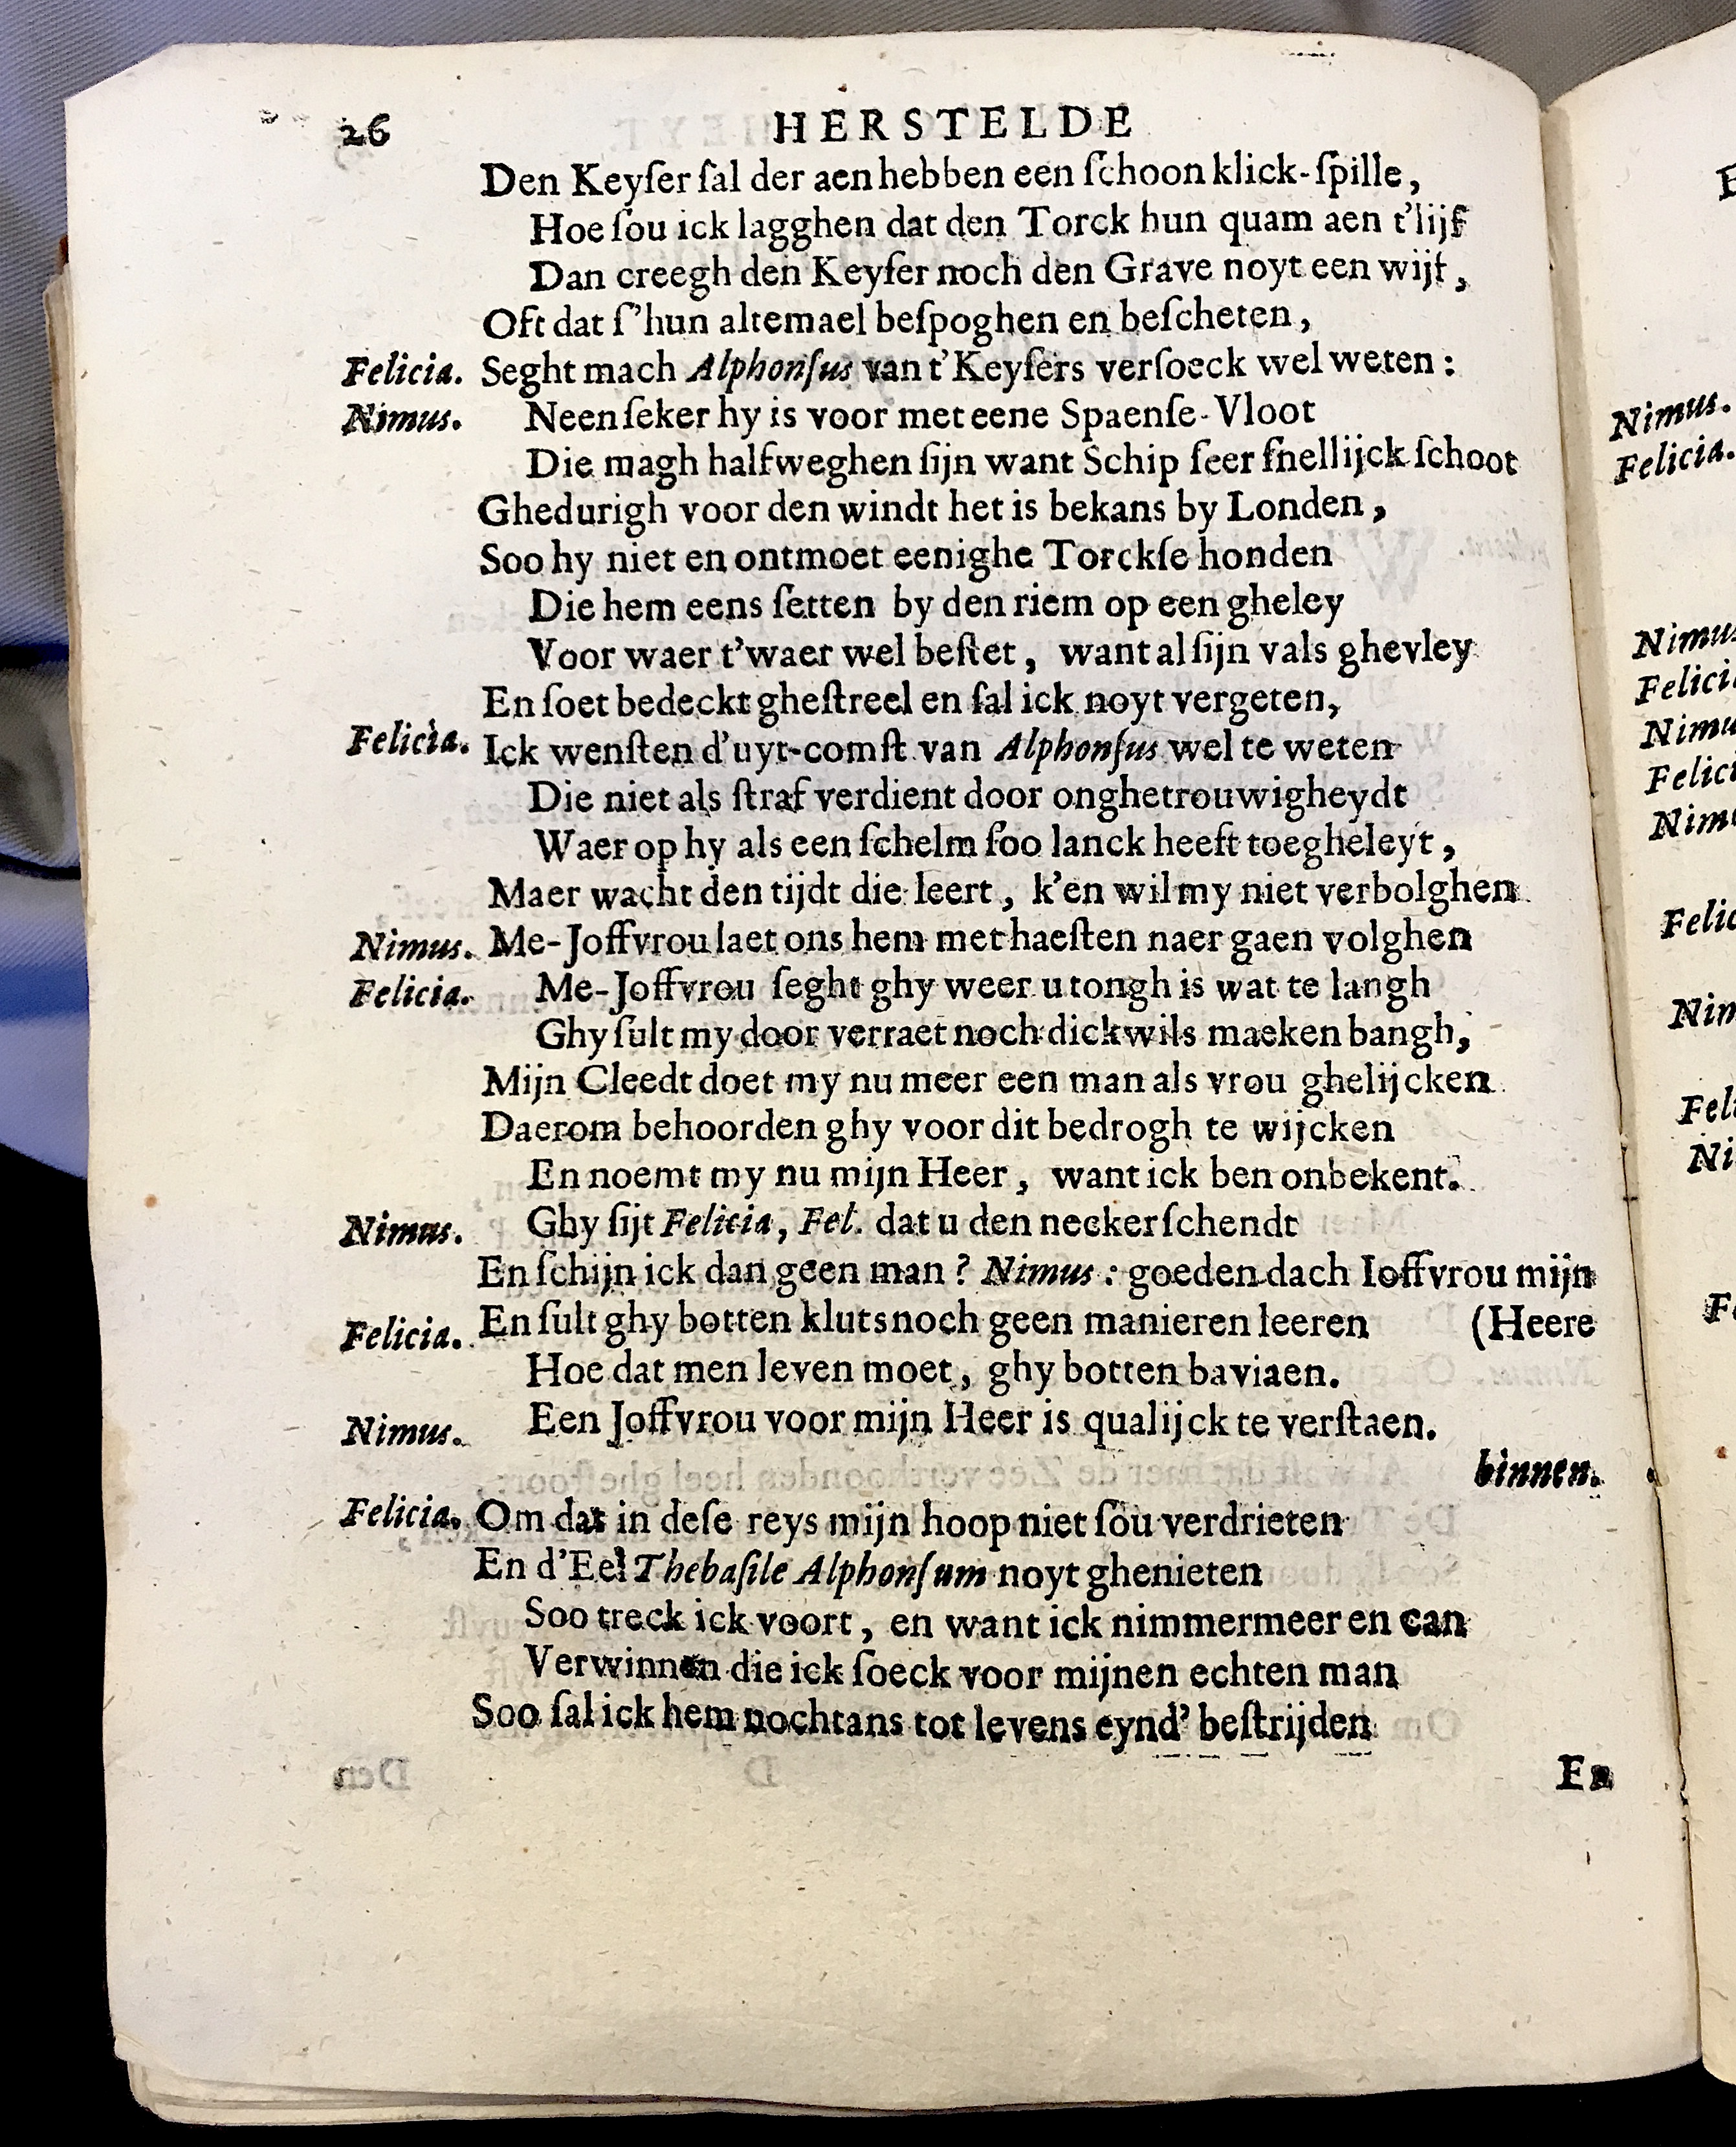 26 HERSTELDE
Den Keyſer ſal der aen hebben een ſchoon klick-ſpille,
Hoe ſou ick lagghen dat den Torck hun quam aen t'lijf
Dan creegh den Keyſer noch den Grave noyt een wijf,
Oft dat ſ'hun altemael beſpoghen en beſcheten,
Felicia. Seght mach Alphonſus van t'Keyſers verſoeck wel weten:
Nimus. Neen ſeker hy is voor met eene Spaenſe-Vloot
Die magh halfweghen ſijn want Schip ſeer ſnellijck ſchoot
Ghedurigh voor den windt het is bekans by Londen,
Soo hy niet en ontmoet eenighe Torckſe honden
Die hem eens ſetten by den riem op een gheley
Voor waer t'waer wel beſtet, want al ſijn vals ghevley
En ſoet bedeckt gheſtreel en ſal ick noyt vergeten,
Felicia. Ick wenſten d'uyt-comſt van Alphonſus wel te weten
Die niet als ſtraf verdient door onghetrouwigheydt
Waer op hy als een ſchelm ſoo lanck heeft toegheleyt,
Maer wacht den tijdt die leert, k'en wil my niet verbolghen
Nimus. Me-Joffvrou laet ons hem met haeſten naer gaen volghen
Felicia. Me-Joffvrou ſeght ghy weer u tongh is wat te langh
Ghy ſult my door verraet noch dickwils maeken bangh,
Mijn Cleedt doet my nu meer een man als vrou ghelijcken
Daerom behoorden ghy voor dit bedrogh te wijcken
En noemt my nu mijn Heer, want ick ben onbekent.
Nimus. Ghy ſijt Felicia, Fel. dat u den necker ſchendt
En ſchijn ick dan geen man? Nimus: goeden dach Ioffvrou mijn
Felicia. En ſult ghy botten kluts noch geen manieren leeren (Heere
Hoe dat men leven moet, ghy botten baviaen.
Nimus. Een Joffvrou voor mijn Heer is qualijck te verſtaen.
binnen.
Felicia. Om dat in deſe reys mijn hoop niet ſou verdrieten
En d'Eel Thebaſile Alphonſum noyt ghenieten
Soo treck ick voort, en want ick nimmermeer en can
Verwinnen die ick ſoeck voor mijnen echten man
Soo ſal ick hem nochtans tot levens eynd' beſtrijden
En
Nimus.
Felicia.